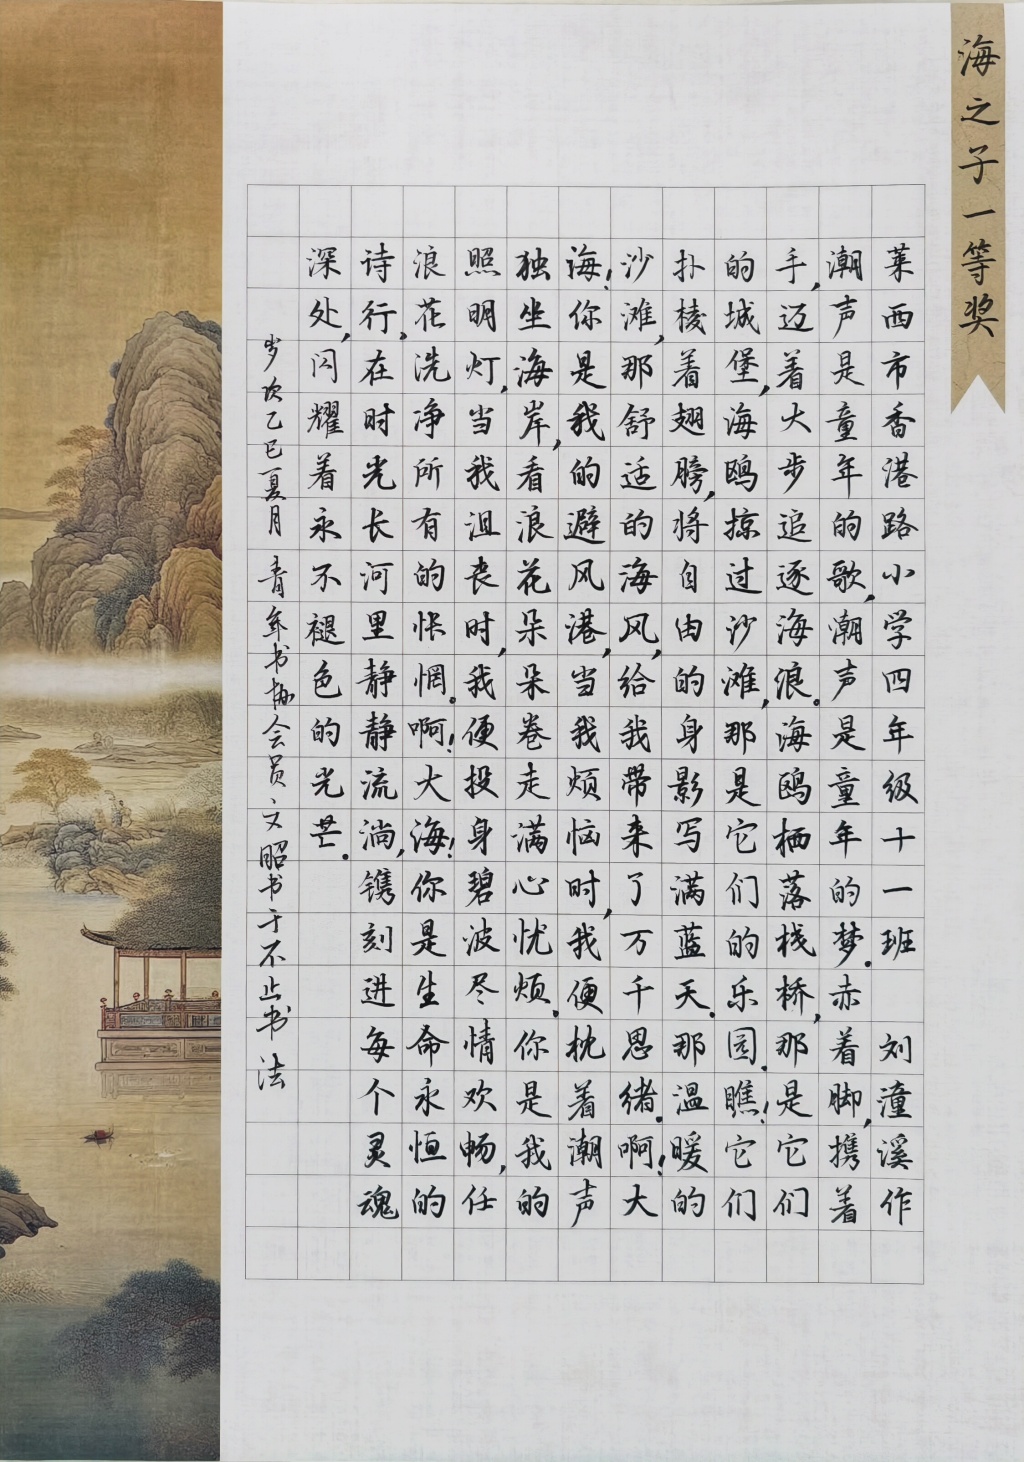 海之子一等奖
莱西市香港路小学四年级十一班 刘潼溪作
潮声是童年的歌,潮声是童年的梦.赤着脚,携着
手,迈着大步追逐海浪。海鸥栖落栈桥,那是它们
的城堡,海鸥掠过沙滩,那是它们的乐园.瞧!它们
扑棱着翅膀,将自由的身影写满蓝天.那温暖的
沙滩,那舒适的海风,给我带来了万千思绪.啊!大
海!你是我的避风港,当我烦恼时,我便枕着潮声
独坐海岸,看浪花朵朵卷走满心忧烦.你是我的
照明灯,当我沮丧时,我便投身碧波尽情欢畅,任
浪花洗净所有的怅惘。啊!大海!你是生命永恒的
诗行,在时光长河里静静流淌,镌刻进每个灵魂
深处,闪耀着永不褪色的光芒.
岁次乙巳夏月 青年书协会员文昭书于不止书法